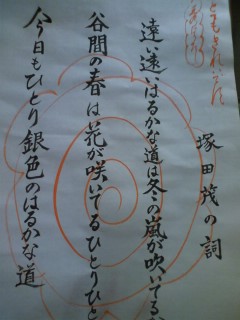 塚田茂の詞
遠い遠いはるかな道は冬の嵐が吹いてる
谷間の春は花が咲いてるひとりひと
今日もひとり銀色のはるかな道